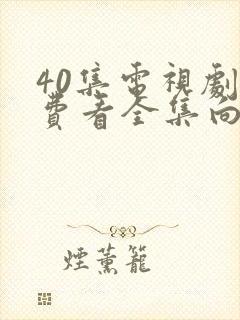 40集電視劇
費看全集向
煙薰籠